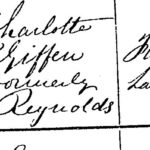 Charlotte
Giffen
formerly
Reynolds